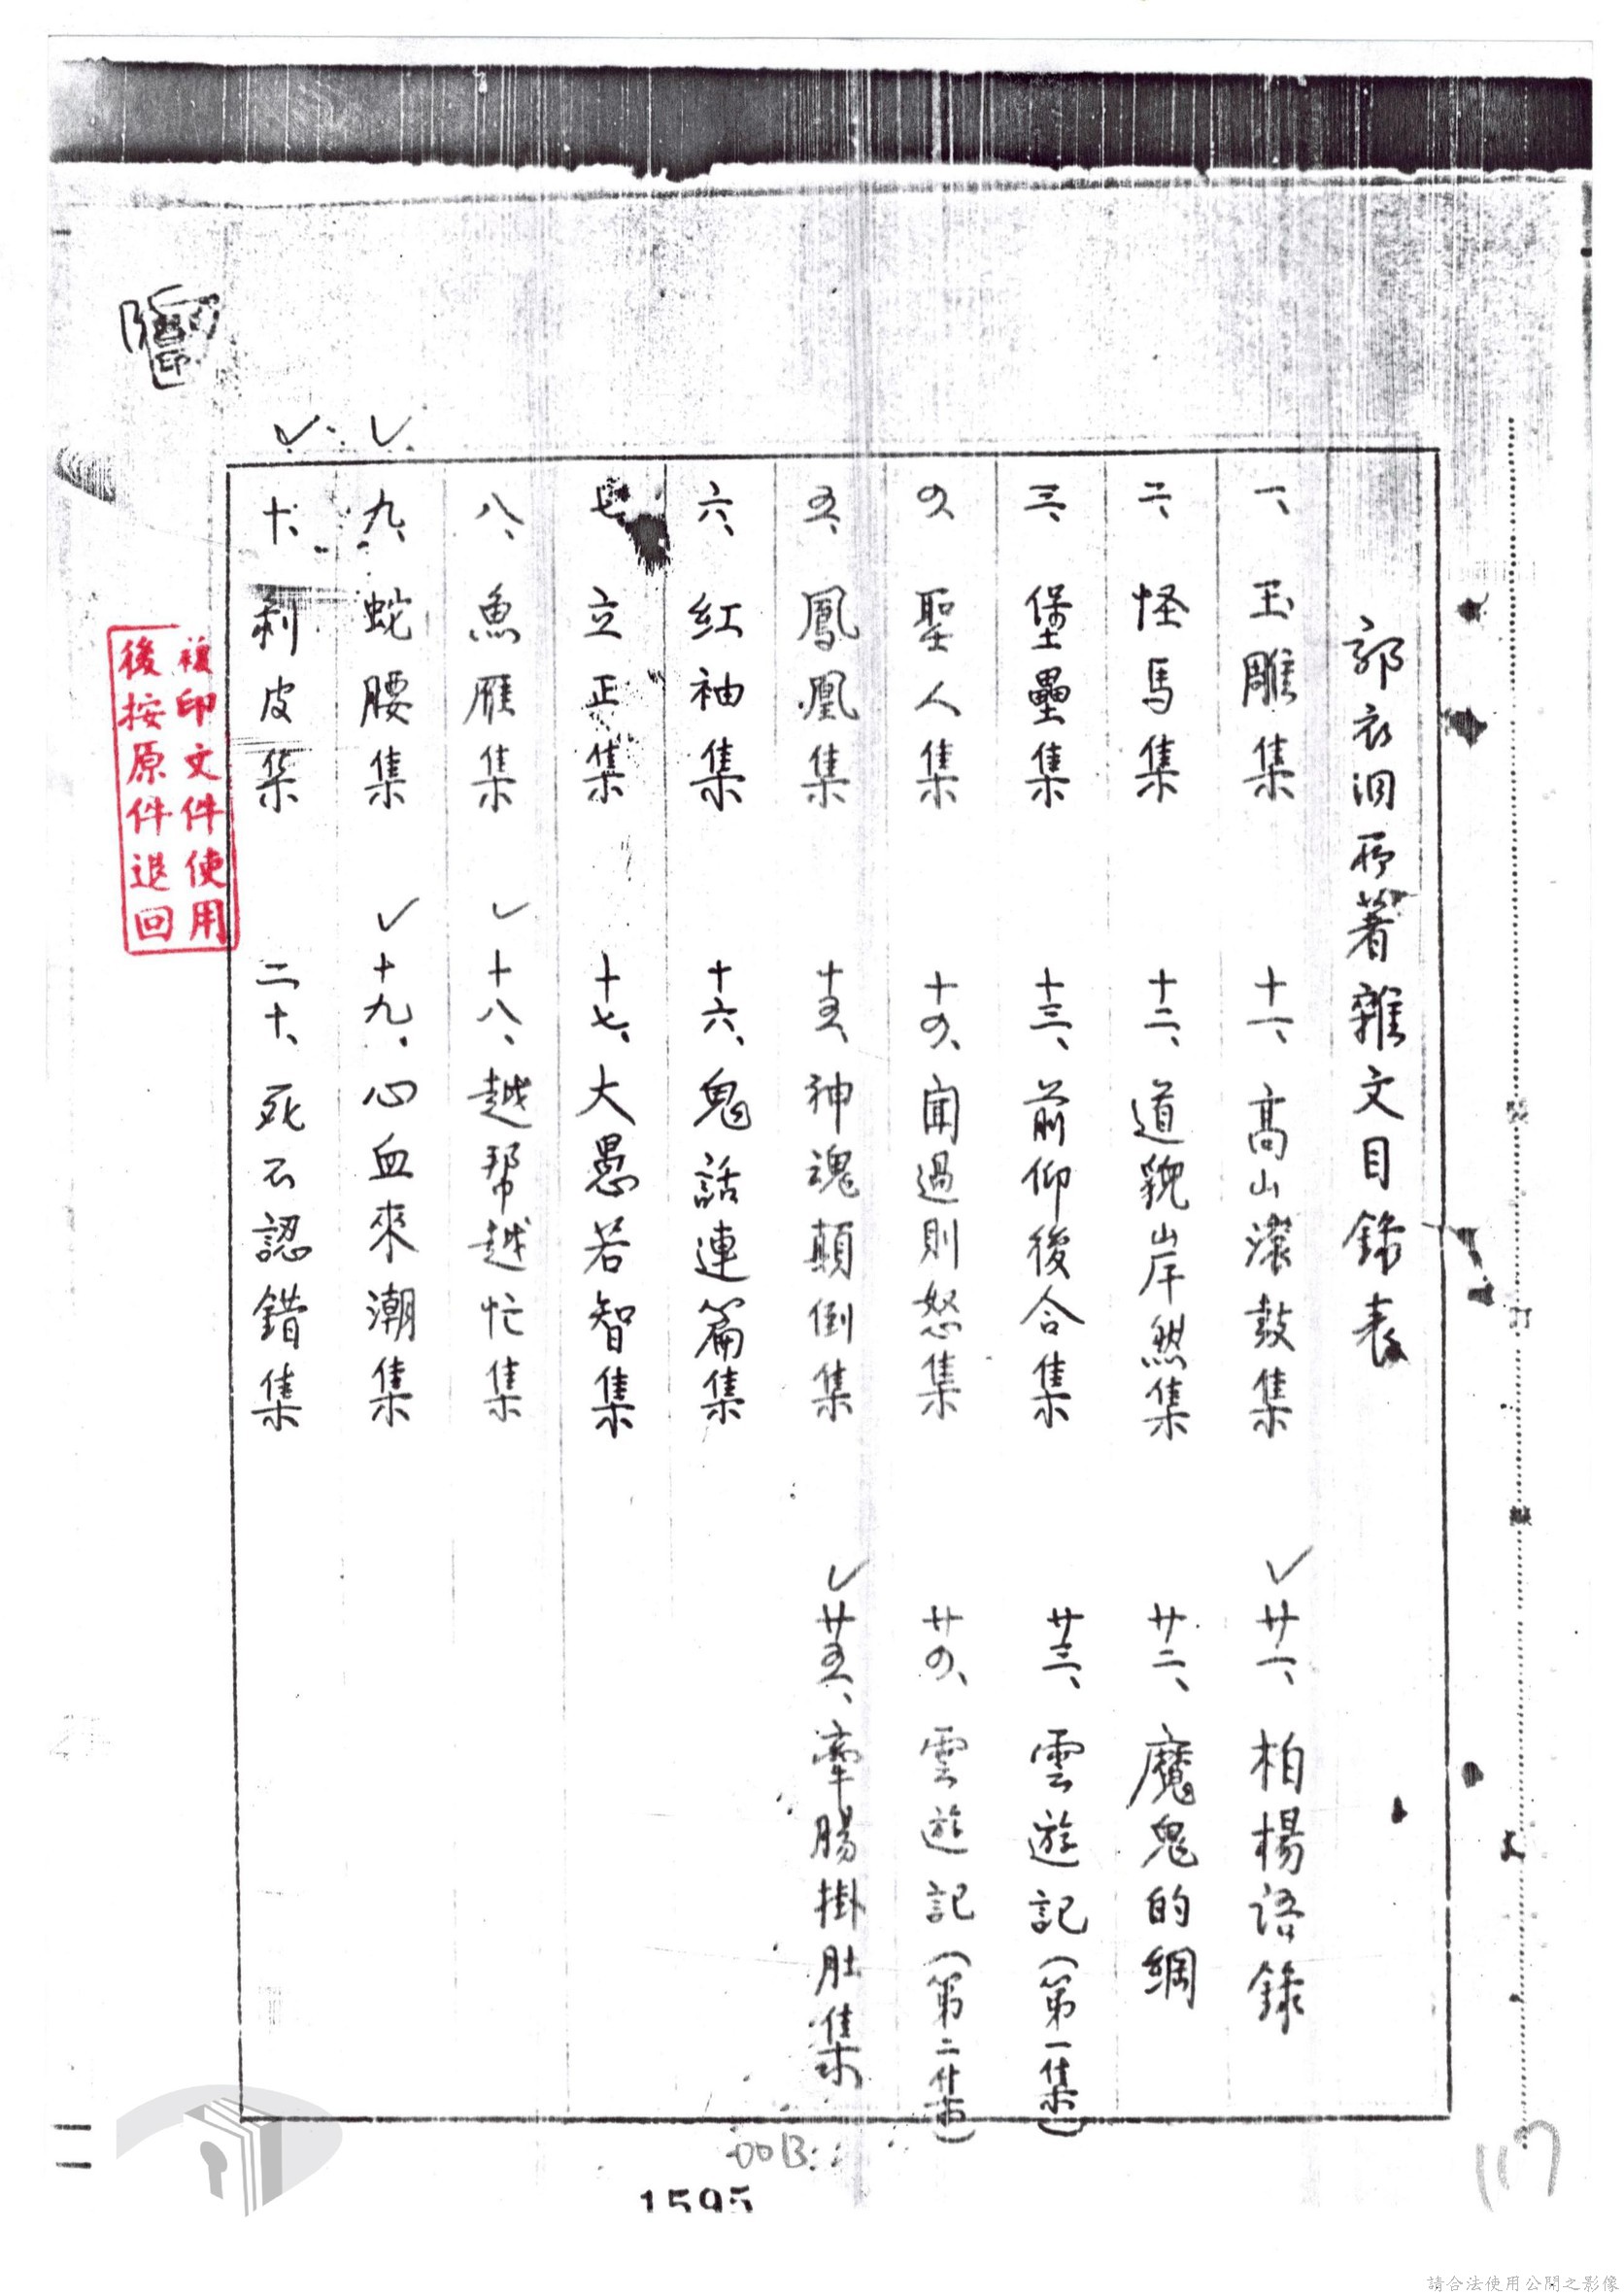 郭衣洞所著雜文目錄表
一、玉雕集
十一、高山滾鼓集
廿一、柏楊語錄
二、怪馬集
十二、道貌岸然集
廿二、魔鬼的網
三、堡壘集
十三、前仰後合集
廿三、雲遊記(第一集)
四、聖人集
十四、聞過則怒集
廿四、雲遊記(第二集)
五、鳳凰集
十五、神魂顛倒集
廿五、牽腸掛肚集
六、紅袖集
十六、鬼話連篇集
七、立正集
十七、大愚若智集
八、魚雁集
十八、越幫越忙集
九、蛇腰集
十九、心血來潮集
十、剝皮集
二十、死不認錯集
複印文件使用
後按原件退回
0013
1505
117
請合法使用公開之影像